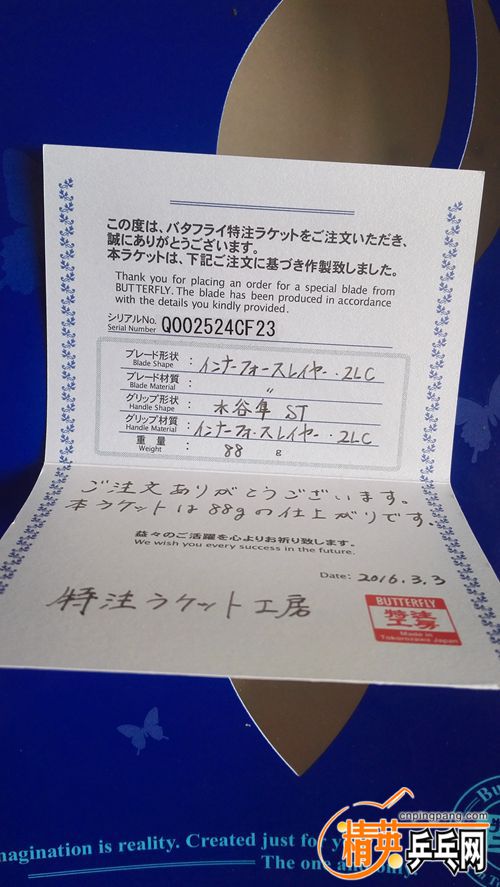 この度は、バタフライ特注ラケットをご注文いただき、
誠にありがとうございます。
本ラケットは、下記ご注文に基づき作製致しました。
Thank you for placing an order for a special blade from
BUTTERFLY. The blade has been produced in accordance
with the details you kindly provided.
シリアルNo.
Serial Number Q002524CF23
ブレード形状
Blade Shape : インナーフォースレイヤー・ZLC
ブレード材質
Blade Material : 〃
グリップ形状
Handle Shape : 水谷隼 ST
グリップ材質
Handle Material : インナーフォースレイヤー・ZLC
重量
Weight : 88 g
ご注文ありがとうございます。
本ラケットは88gの仕上がりです。
益々のご活躍を心よりお祈り致します。
We wish you every success in the future.
Date: 2016.3.3
特注ラケット工房
BUTTERFLY
特注
工房
Made in
Tokorozawa Japan
magination is reality. Created just for yo
The one and only
cnpingpang.com
精英乒乓网